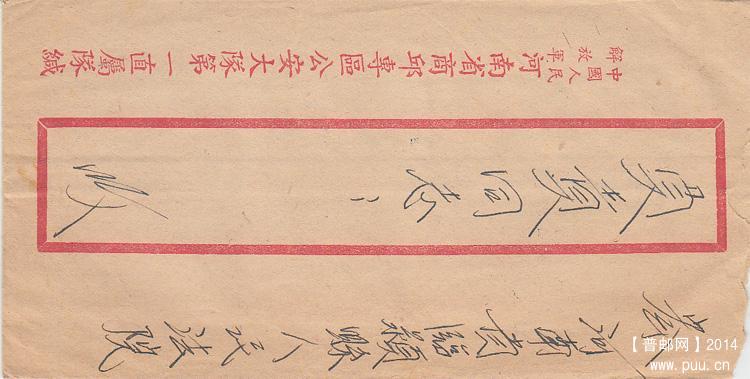 河南省臨潁縣人民法院
同志：收
中國人民解放軍河南省商邱專區公安大隊第一直屬隊緘
【普邮网】2014
www.puu.cn